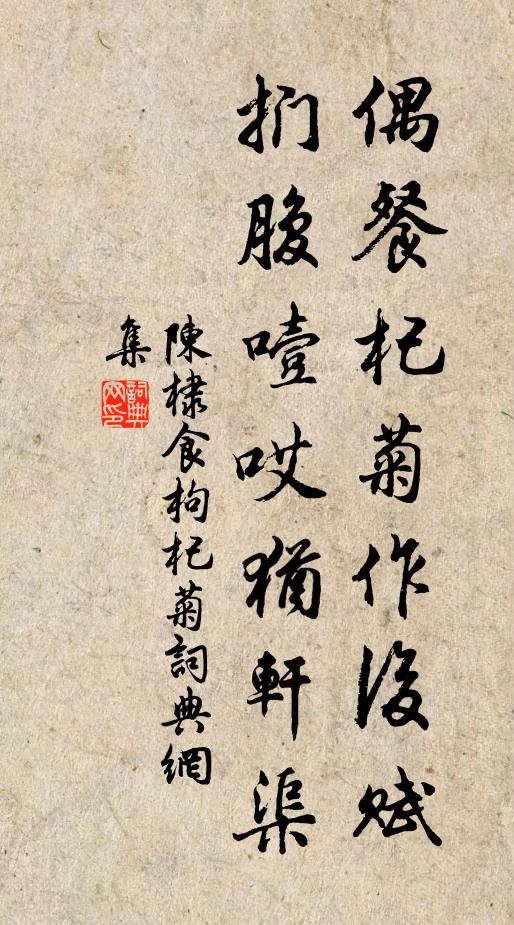 偶餐杞菊作後賦
捫腹噎哎猶軒渠
陳棣食枸杞菊詞典網
集
詞典網印